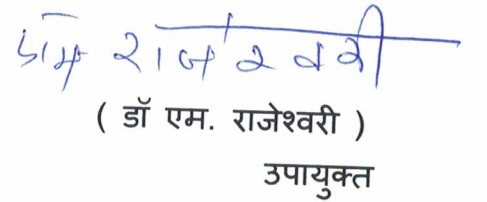 एम राजेश्वरी
( डॉ एम. राजेश्वरी )
उपायुक्त